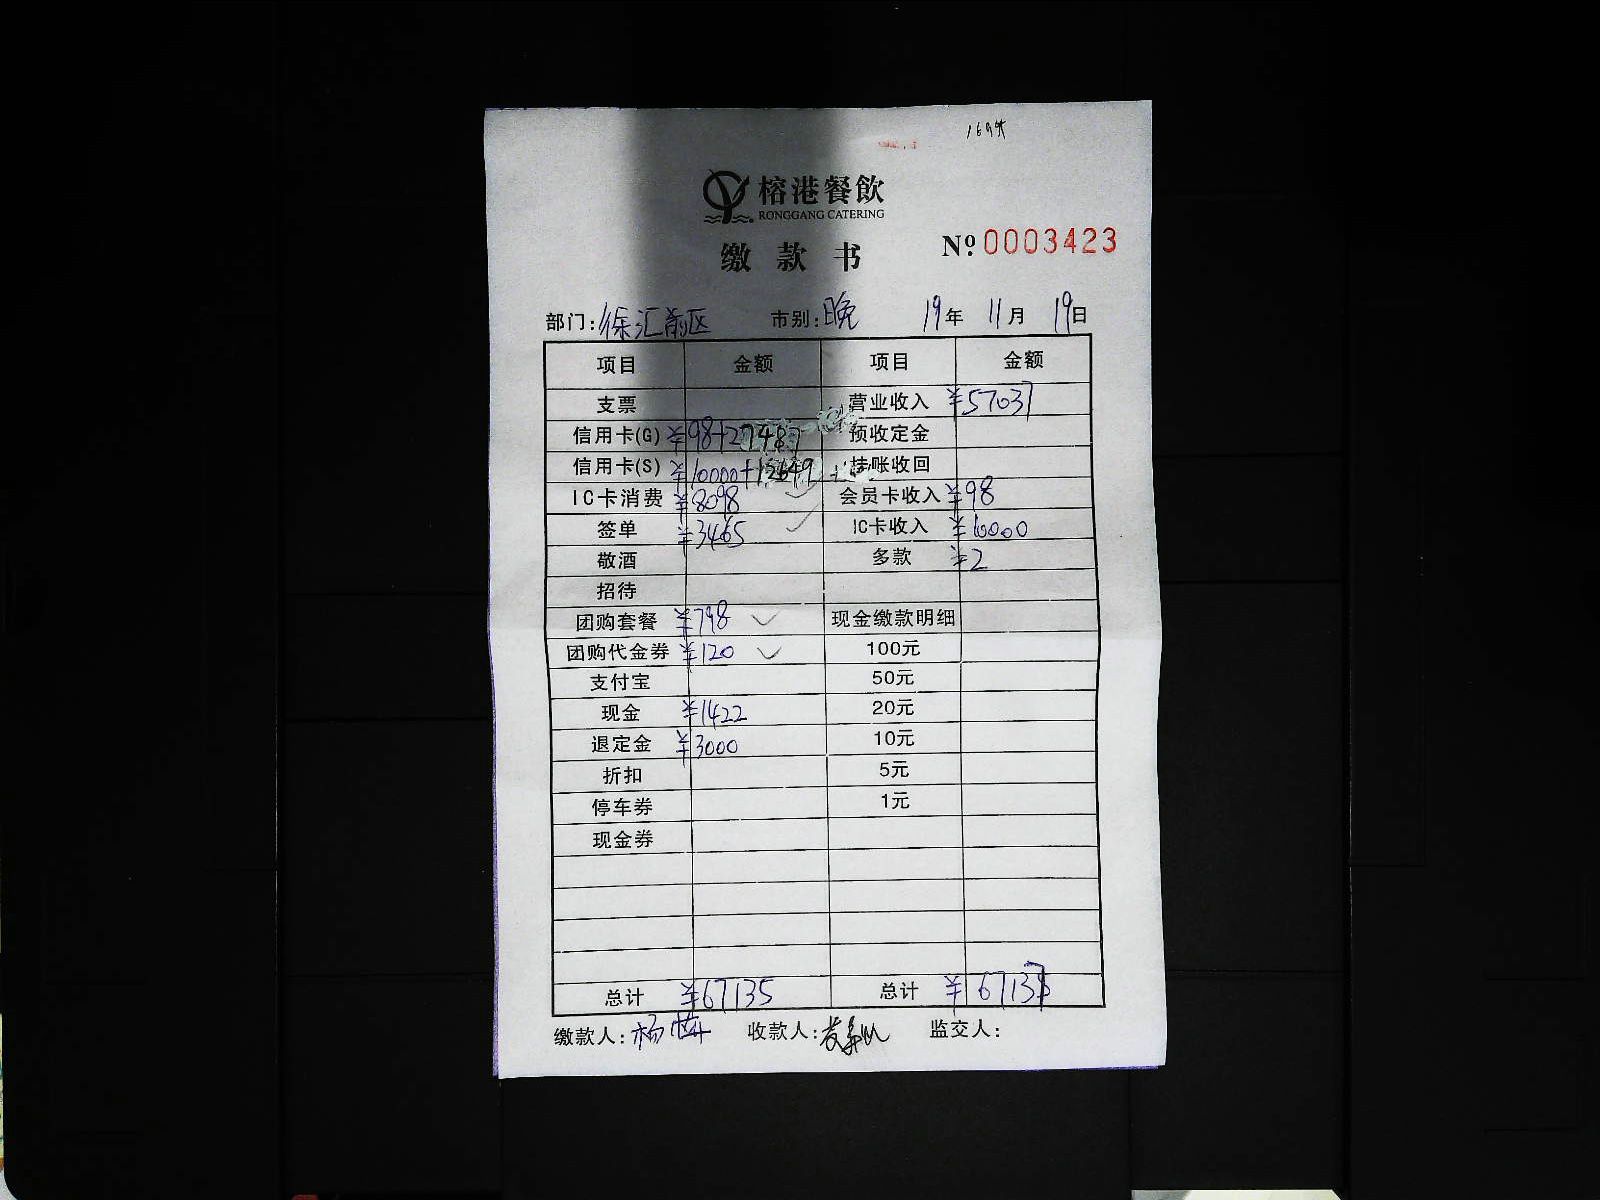 榕港餐飲
RONGGANG CATERING
缴款书
№ 0003423
部门: 徐汇南区 市别: 晚 19年 11月 19日
项目 金额 项目 金额
支票 营业收入 ¥57037
信用卡(G) ¥98+27487 预收定金
信用卡(S) ¥10000+12649 挂账收回
IC卡消费 ¥8098 会员卡收入 ¥98
签单 ¥3465 IC卡收入 ¥10000
敬酒 多款 ¥2
招待
团购套餐 ¥798 现金缴款明细
团购代金券 ¥120 100元
支付宝 50元
现金 ¥1422 20元
退定金 ¥3000 10元
折扣 5元
停车券 1元
现金券
总计 ¥67135 总计 ¥67137
缴款人: 杨 收款人: 监交人: